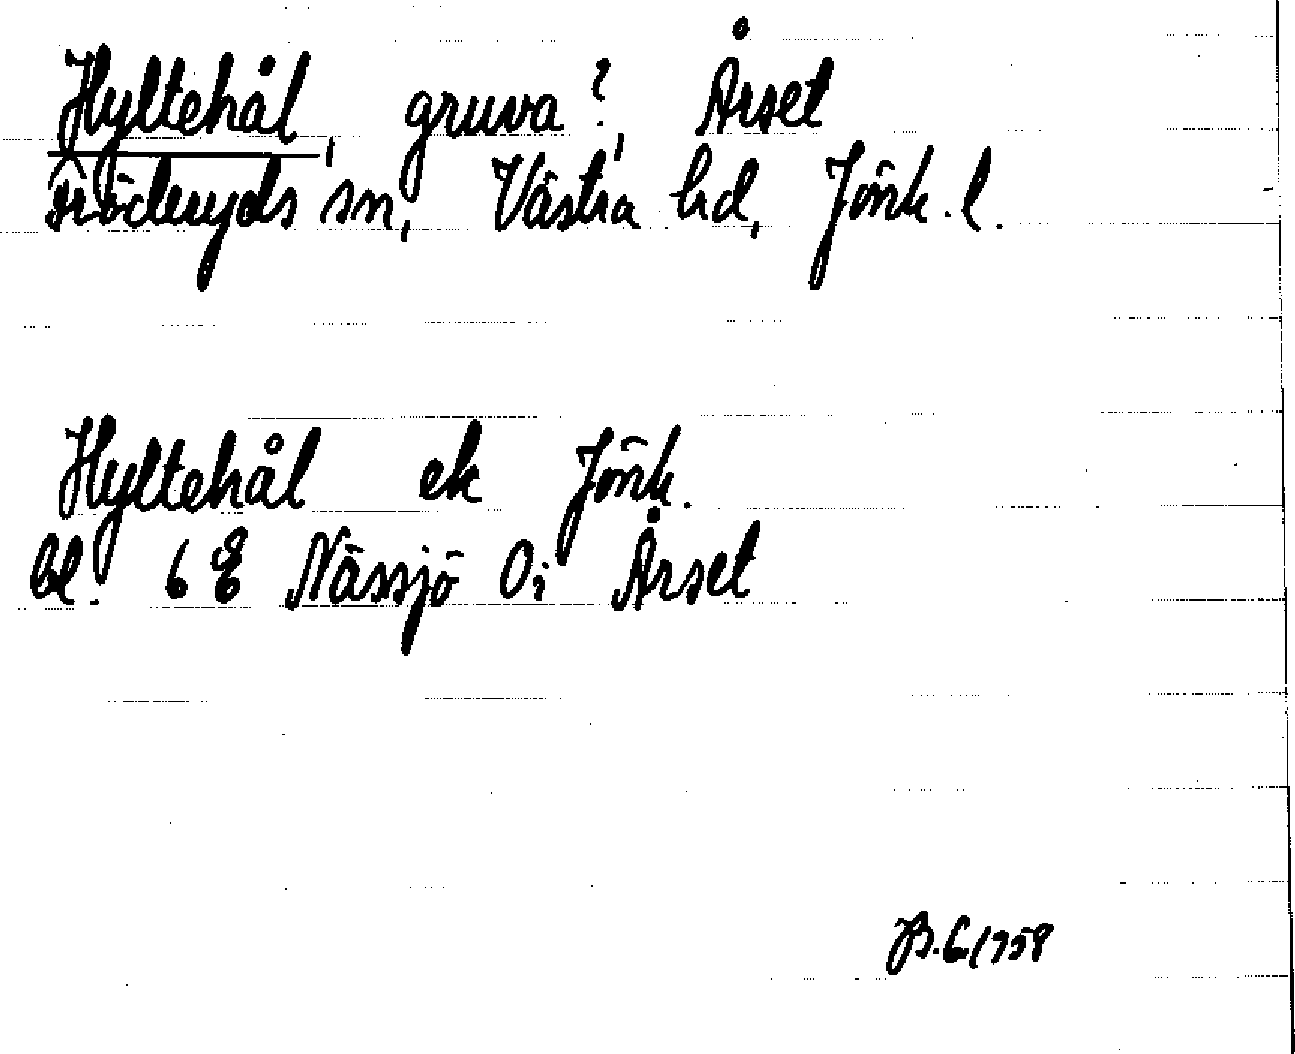 Hyltehål, gruva?, Årset
Fröderyds sn, Västra hd, Jönk. l.
Hyltehål ek Jönk.
bl. 6 E Nässjö 0i Årset